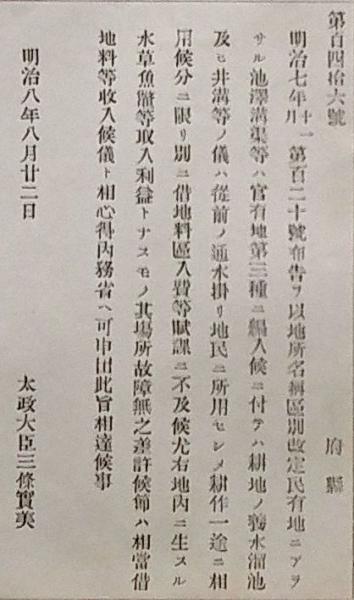 第百四拾六號
府縣
明治七年十一月第百二十號布告ヲ以地所名稱區別改定民有地ニアラ
サル池澤溝渠等ハ官有地第三種ニ編入候ニ付テハ耕地ノ養水溜池
及ヒ井溝等ノ儀ハ從前ノ通水掛リ地民ニ所用セシメ耕作一途ニ相
用候分ニ限リ別ニ借地料區入費等賦課ニ不及候尤右地內ニ生スル
水草魚鼈等取入利益トナスモノ其場所故障無之差許候節ハ相當借
地料等收入候儀ト相心得內務省ヘ可申出此旨相達候事
明治八年八月廿二日
太政大臣三條實美